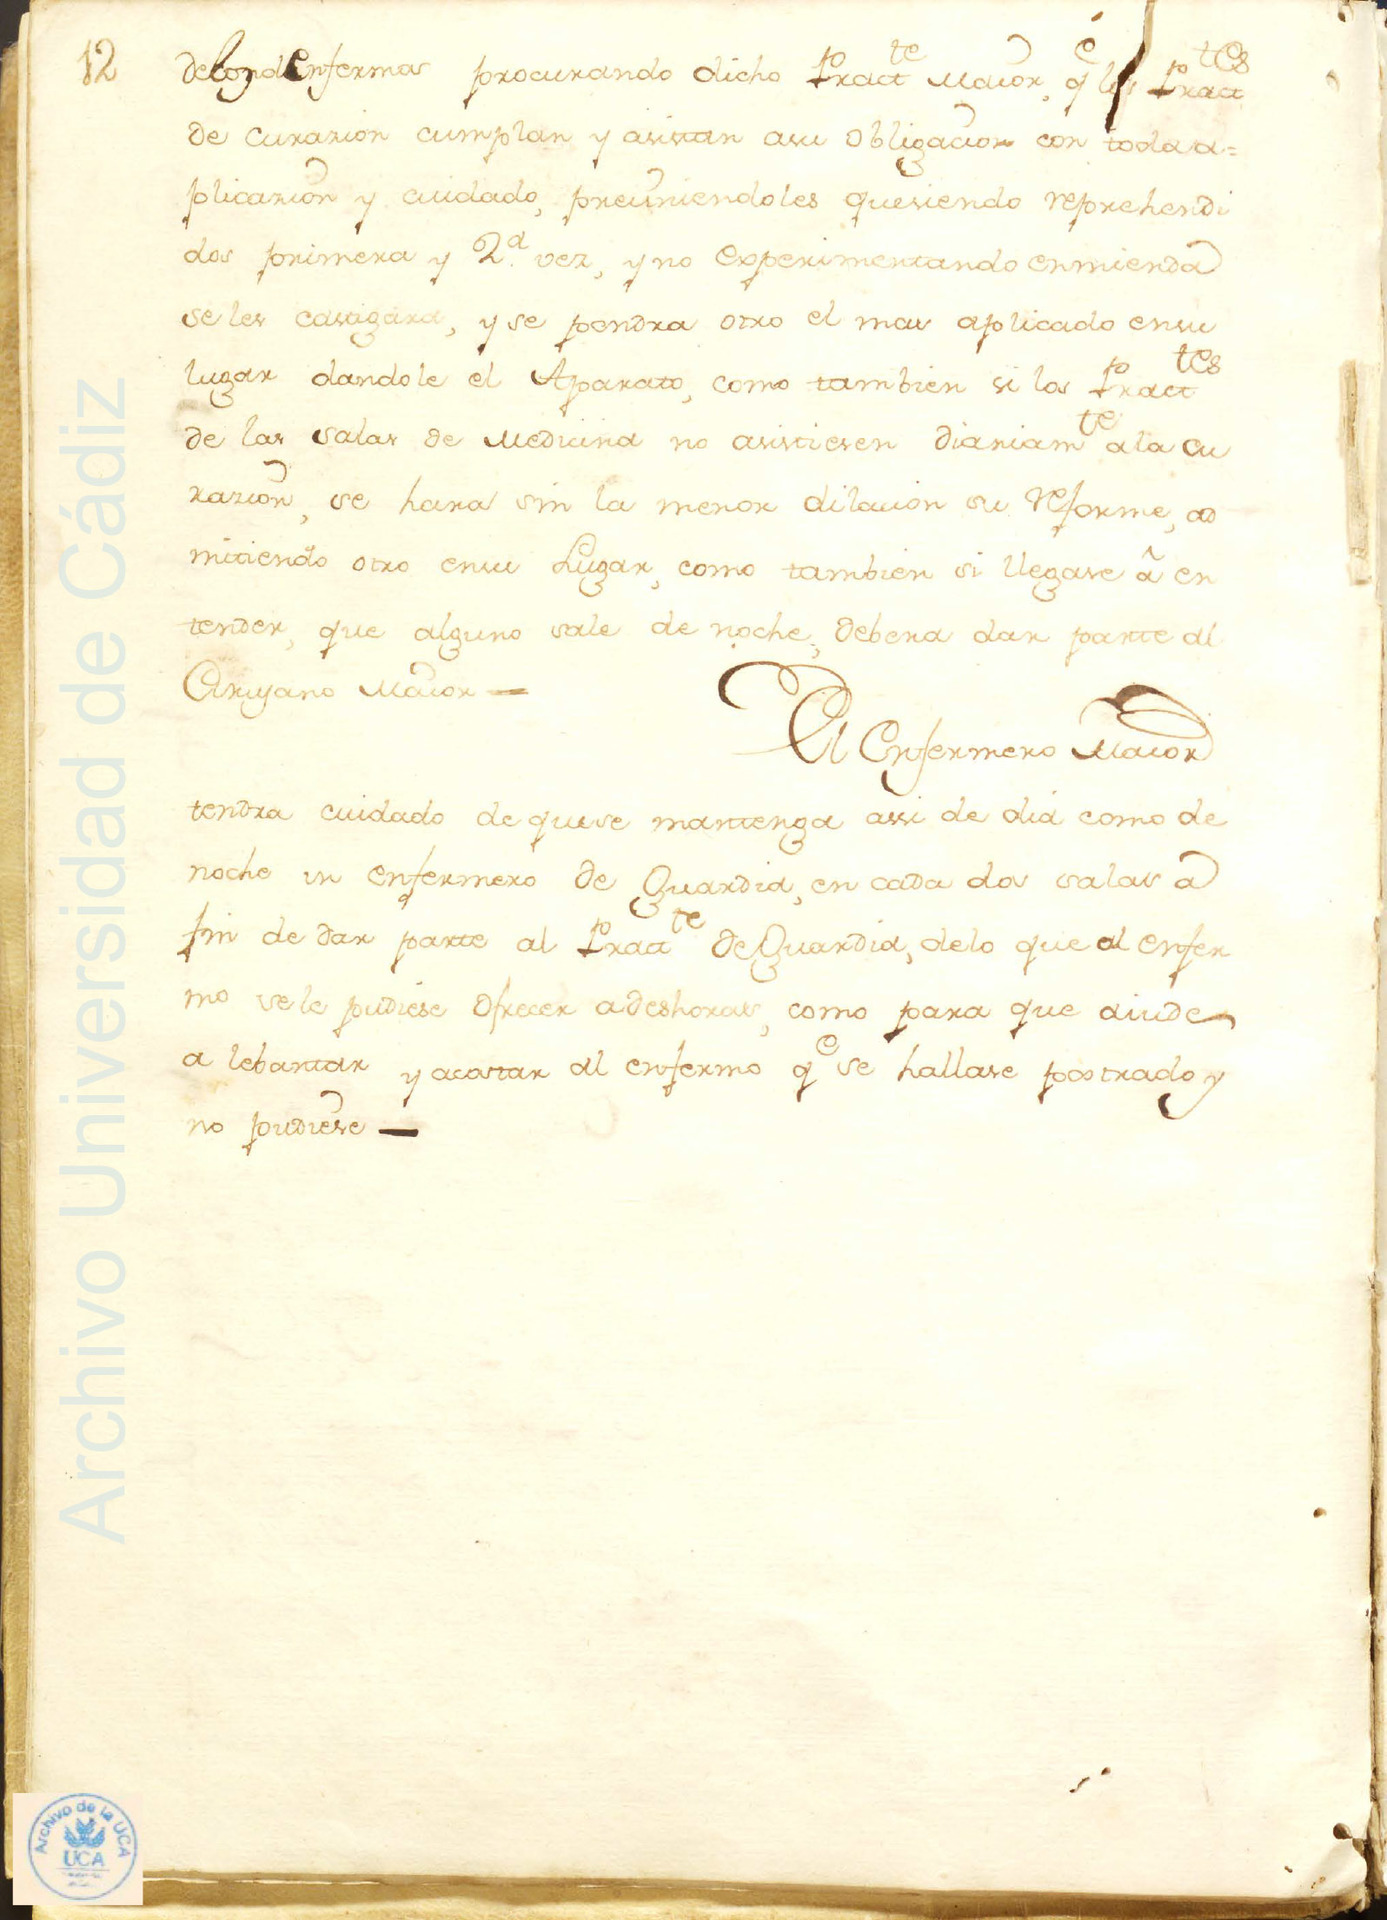 12
de los enfermos procurando dicho Practte Maior, qe los Practtes
de curazion cumplan y asistan asu obligacion con toda a=
plicazion y cuidado, previniendoles que siendo reprehendi
dos primera y 2.a vez, y no experimentando enmienda
se les castigára, y se pondra otro el mas aplicado ensu
lugar dandole el Aparato, como tambien si los Practtes
de las salas de Medicina no asistiesen diariamte ala cu
razion, se hara sin la menor dilacion su reforme, ad
mitiendo otro ensu Lugar, como tambien si llegase â en
tender, que alguno sale de noche, debera dar parte al
Cirujano Maior —
El Enfermero Maior
tendra cuidado de que se mantenga assi de dia como de
noche un enfermero de Guardia, en cada dos salas a
fin de dar parte al Practte de Guardia, delo que al enfer
mo se le pudiese ofrecer a deshoras, como para que aiude
a lebantar y acostar al enfermo qe se hallase postrado y
no pudiese —
Archivo Universidad de Cádiz
Archivo de la UCA
UCA